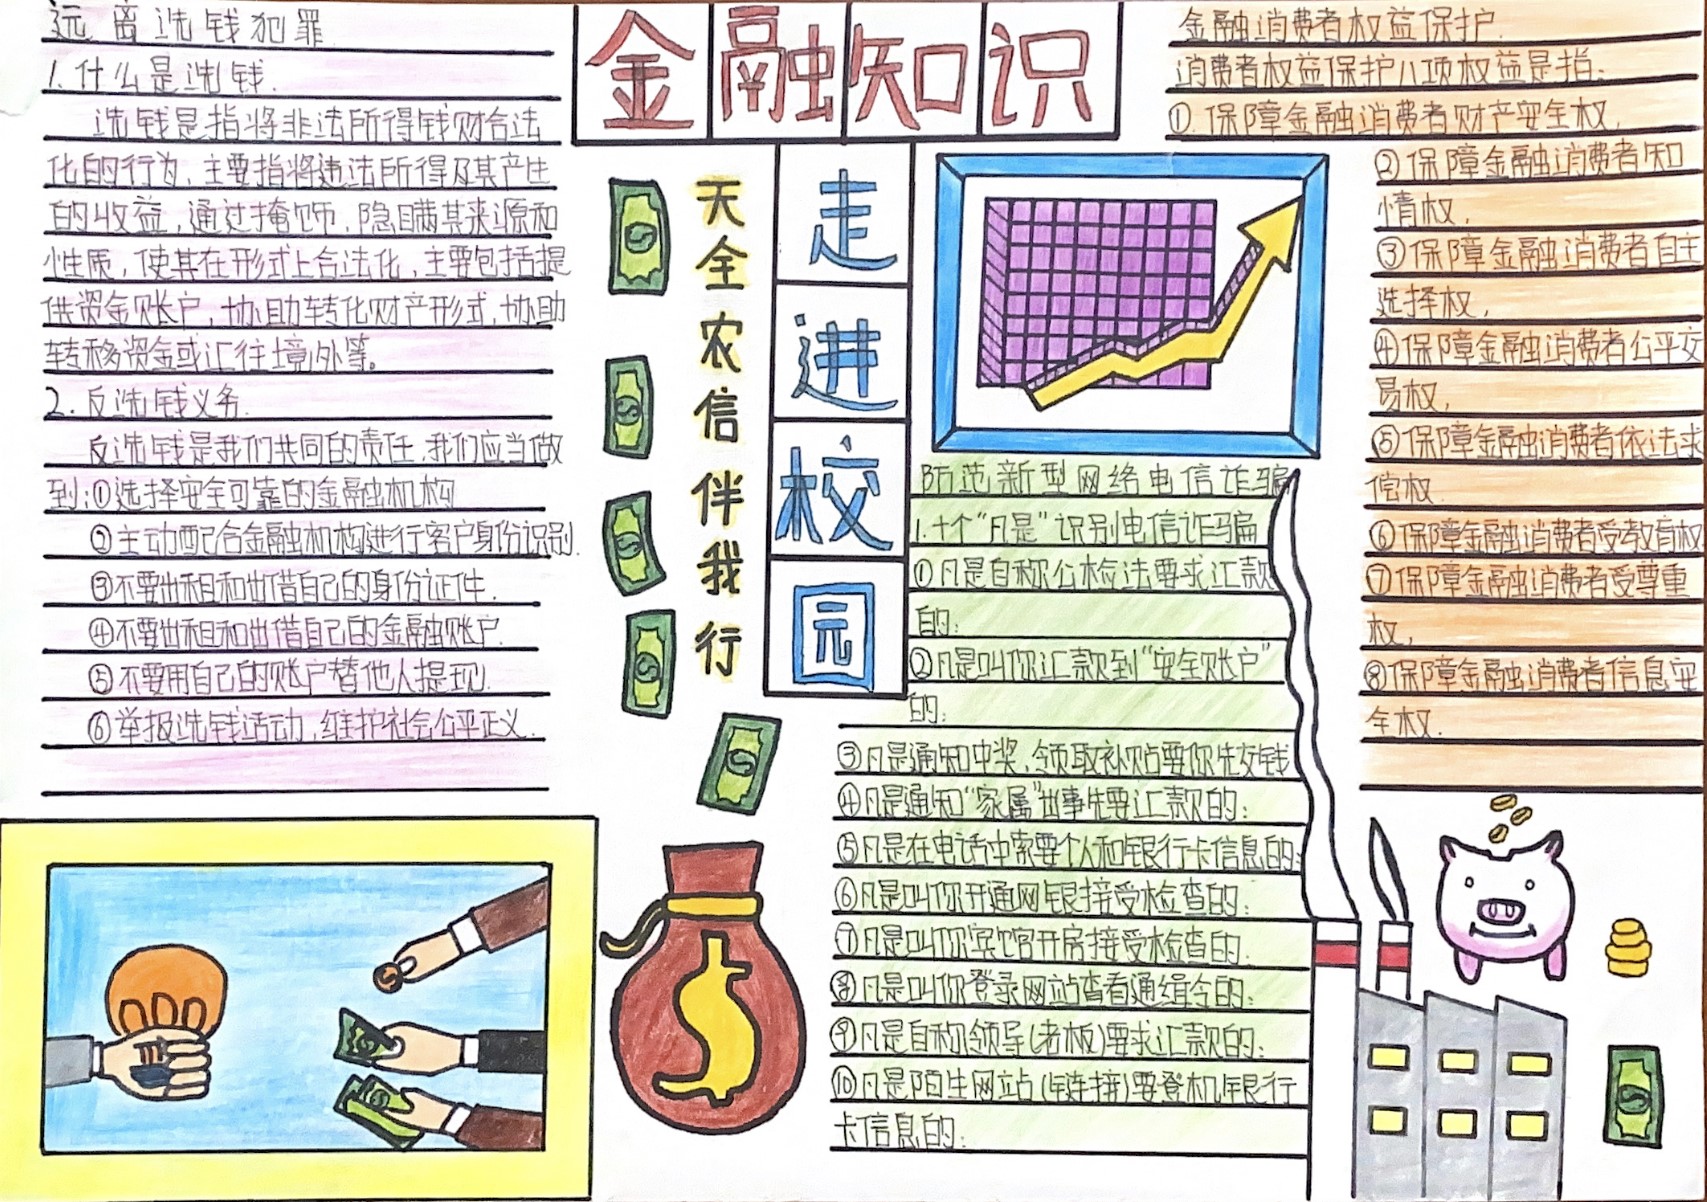 远离洗钱犯罪
1.什么是洗钱.
洗钱是指将非法所得钱财合法
化的行为,主要指将违法所得及其产生
的收益,通过掩饰,隐瞒其来源和
性质,使其在形式上合法化,主要包括提
供资金账户,协助转化财产形式,协助
转移资金或汇往境外等。
2.反洗钱义务.
反洗钱是我们共同的责任.我们应当做
到:①选择安全可靠的金融机构
②主动配合金融机构进行客户身份识别.
③不要出租和出借自己的身份证件.
④不要出租和出借自己的金融账户.
⑤不要用自己的账户替他人提现.
⑥举报洗钱活动,维护社会公平正义.
金融知识
走进校园
天全农信伴我行
防范新型网络电信诈骗
1.十个"凡是"识别电信诈骗
①凡是自称公检法要求汇款
的;
②凡是叫你汇款到"安全账户"
的;
③凡是通知中奖,领取补贴要你先交钱
④凡是通知"家属"出事先要汇款的;
⑤凡是在电话中索要个人和银行卡信息的;
⑥凡是叫你开通网银接受检查的;
⑦凡是叫你宾馆开房接受检查的.
⑧凡是叫你登录网站查看通缉令的;
⑨凡是自称领导(老板)要求汇款的;
⑩凡是陌生网站(链接)要登机银行
卡信息的;
金融消费者权益保护.
消费者权益保护八项权益是指:
①.保障金融消费者财产安全权,
②保障金融消费者知
情权,
③保障金融消费者自主
选择权,
④保障金融消费者公平交
易权,
⑤保障金融消费者依法求
偿权.
⑥保障金融消费者受教育权
⑦保障金融消费者受尊重
权,
⑧保障金融消费者信息安
全权.